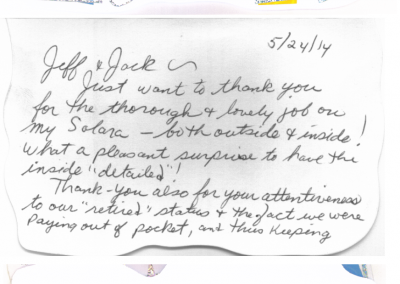 5/24/14
Jeff & Jack ~
Just want to thank you
for the thorough & lovely job on
my Solara – both outside & inside!
What a pleasant surprise to have the
inside "detailed"!
Thank-you also for your attentiveness
to our "retired" status & the fact we were
paying out of pocket, and thus keeping